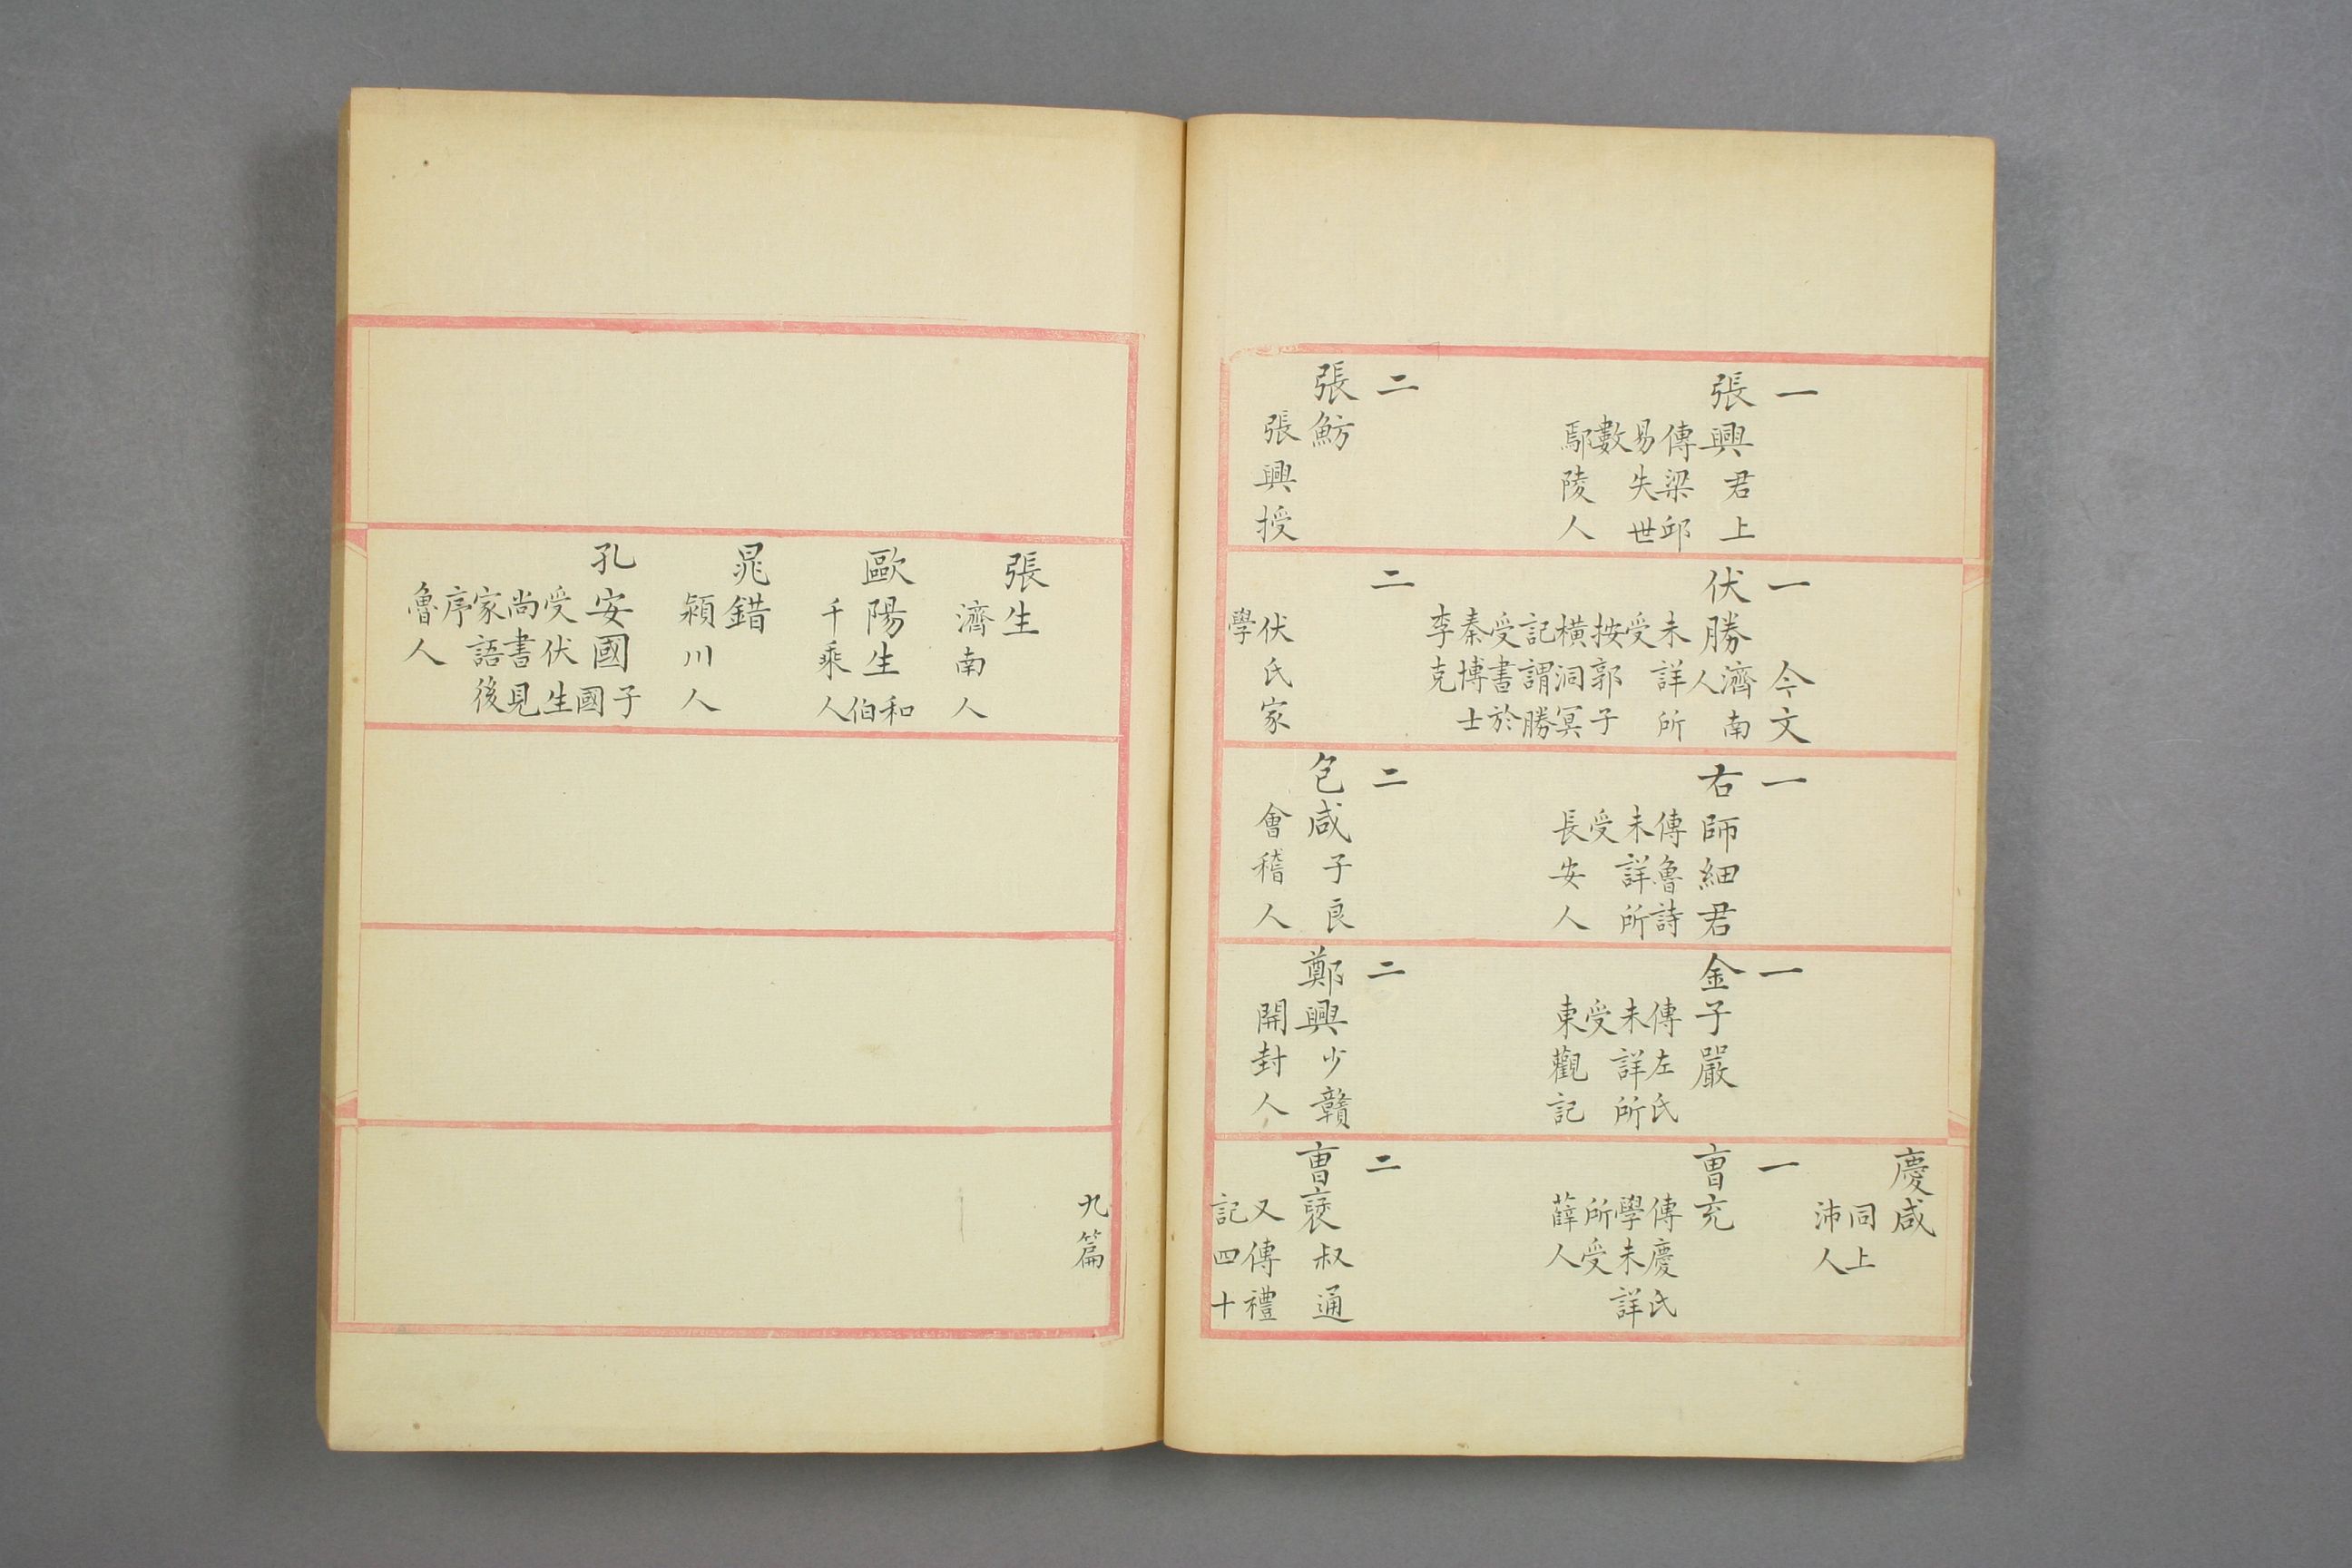 一
張興君上
傳梁邱
易失世
數
鄢陵人
二
張魴
張興授
一　今文
伏勝濟南
人
未詳所
受
按郭子
橫洞冥
記謂勝
受書於
秦博士
李克
二
伏氏家
學
一
右師細君
傳魯詩
未詳所
受
長安人
二
包咸子良
會稽人
一
金子嚴
傳左氏
未詳所
受
東觀記
二
鄭興少贛
開封人
慶咸
同上
沛人
一
曺充
傳慶氏
學未詳
所受
薛人
二
曺襃叔通
又傳禮
記四十
九篇
張生
濟南人
歐陽生和
伯
千乘人
晁錯
潁川人
孔安國子
國
受伏生
尚書見
家語後
序
魯人